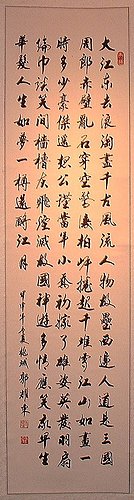 大江東去浪淘盡千古風流人物故壘西邊人道是三國
周郎赤壁亂石穿空驚濤拍岸捲起千堆雪江山如畫一
時多少豪傑遙想公瑾當年小喬初嫁了雄姿英發羽扇
綸巾談笑間檣櫓灰飛煙滅故國神遊多情應笑我早生
華髮人生如夢一樽還酹江月